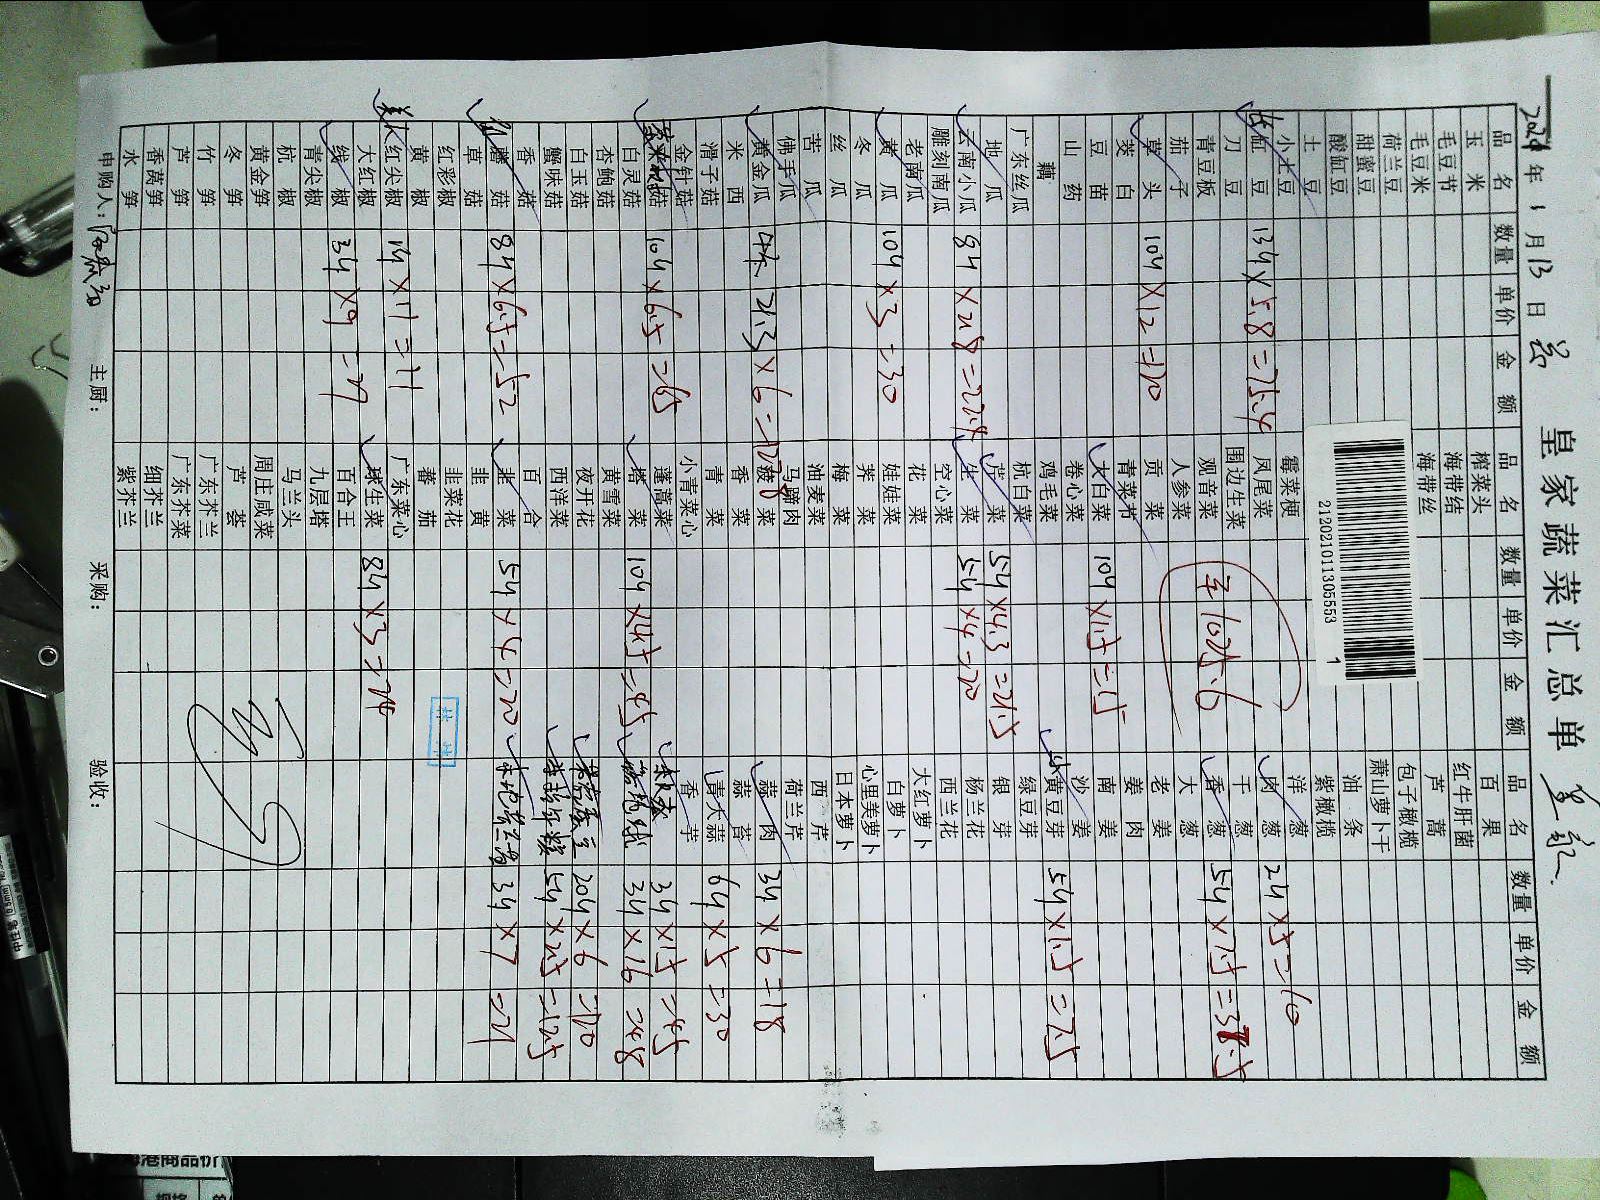 皇家蔬菜汇总单
年 1 月 13 日
品名 数量 单价 金额
玉米
毛豆节
毛豆米
荷兰豆
甜蜜豆
酸缸豆
土豆
小土豆
缸豆 13斤×5.8=75.4
刀豆
青豆板
茄子
草头 10斤×12=120
茭白
豆苗
山药
藕
广东丝瓜
地瓜
云南小瓜 8斤×2.8=22.4
雕刻南瓜
老南瓜
黄瓜 10斤×3=30
冬瓜
丝瓜
苦瓜
佛手瓜
黄金瓜 21.3×6=
西米
滑子菇
金针菇
10斤×6.5=65
白灵菇
杏鲍菇
白玉菇
蟹味菇
香菇
蘑菇 8斤×6.5=52
草菇
红彩椒
黄椒
红尖椒 1斤×11=11
大红椒
线椒 3斤×9=27
青尖椒
杭椒
黄金笋
冬笋
竹笋
芦笋
香莴笋
水笋
品名 数量 单价 金额
榨菜头
海带结
海带丝
2120210113055531
霉菜梗
凤尾菜
围边生菜
观音菜
人参菜
贡菜
青菜节
大白菜 10斤×1.5=15
卷心菜
鸡毛菜
杭白菜
芹菜 5斤×4.3=21.5
生菜 5斤×4=20
空心菜
花菜
娃娃菜
荠菜
梅菜
油麦菜
马蹄肉
菠菜
香菜
青菜
小青菜心
蓬蒿菜
塔菜 10斤×4.5=45
黄雪菜
夜开花
西洋菜
百合
韭菜 5斤×4=20
韭黄
韭菜花
蕃茄
广东菜心
球生菜 8斤×3=24
百合王
九层塔
马兰头
周庄咸菜
芦荟
广东芥兰
广东芥菜
细芥兰
紫芥兰
1025.6
品名 数量 单价 金额
百果
红牛肝菌
芦蒿
包子橄榄
萧山萝卜干
油条
紫橄榄
洋葱
肉葱 2斤×5=10
干葱
香葱 5斤×7.5=37.5
大葱
老姜
姜肉
南姜
沙姜
黄豆芽 5斤×1.5=7.5
绿豆芽
银芽
杨兰花
西兰花
大红萝卜
白萝卜
心里美萝卜
日本萝卜
西芹
荷兰芹
蒜肉 3斤×6=18
蒜苔
青大蒜 6斤×5=30
香芋
3斤×15=45
3斤×16=48
20斤×6=120
5斤×25=125
3斤×7=21
申购人: 主厨: 采购: 验收: